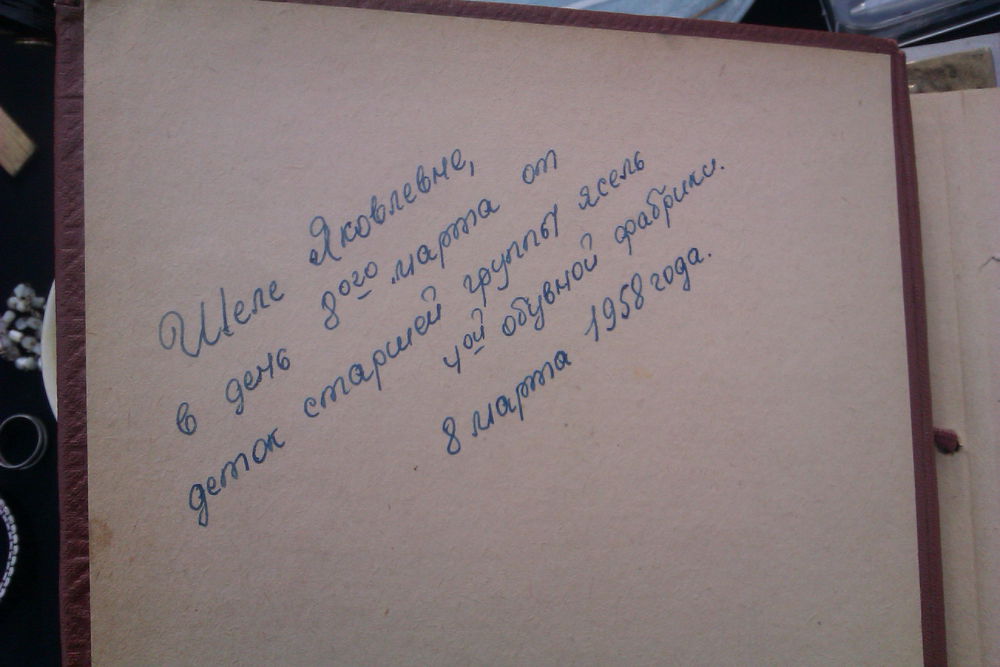 Шеле Яковлевне,
в день 8ого марта от
деток старшей группы ясель
4ой обувной фабрики.
8 марта 1958 года.